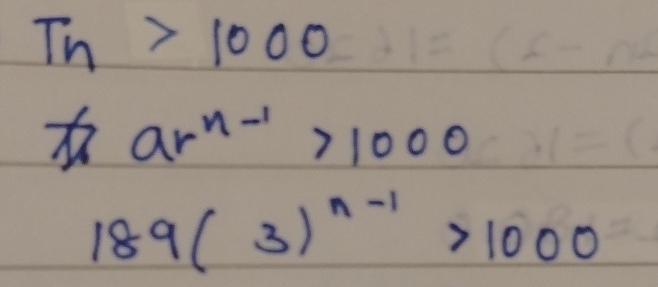 Tn > 1000
ar^n-1 > 1000
189( 3)^n-1 > 1000